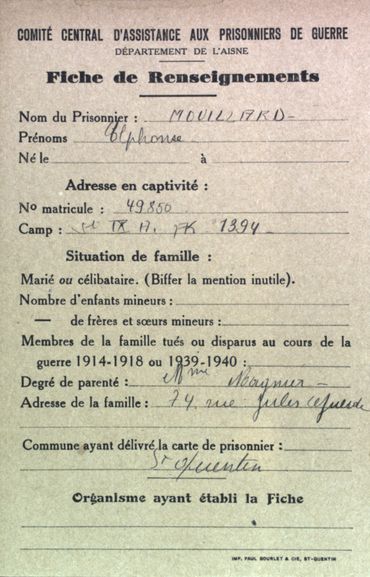 COMITÉ CENTRAL D'ASSISTANCE AUX PRISONNIERS DE GUERRE
DÉPARTEMENT DE L'AISNE
Fiche de Renseignements
Nom du Prisonnier : MOUILLARD
Prénoms Alphonse
Né le à
Adresse en captivité :
No matricule : 49850
Camp : St IX A. AK 1394
Situation de famille :
Marié ou célibataire. (Biffer la mention inutile).
Nombre d'enfants mineurs :
— de frères et sœurs mineurs :
Membres de la famille tués ou disparus au cours de la
guerre 1914-1918 ou 1939-1940 :
Degré de parenté : Mme
Adresse de la famille : 74, rue Jules
Commune ayant délivré la carte de prisonnier :
St Quentin
Organisme ayant établi la Fiche
IMP. PAUL BOURLET & CIE, ST-QUENTIN